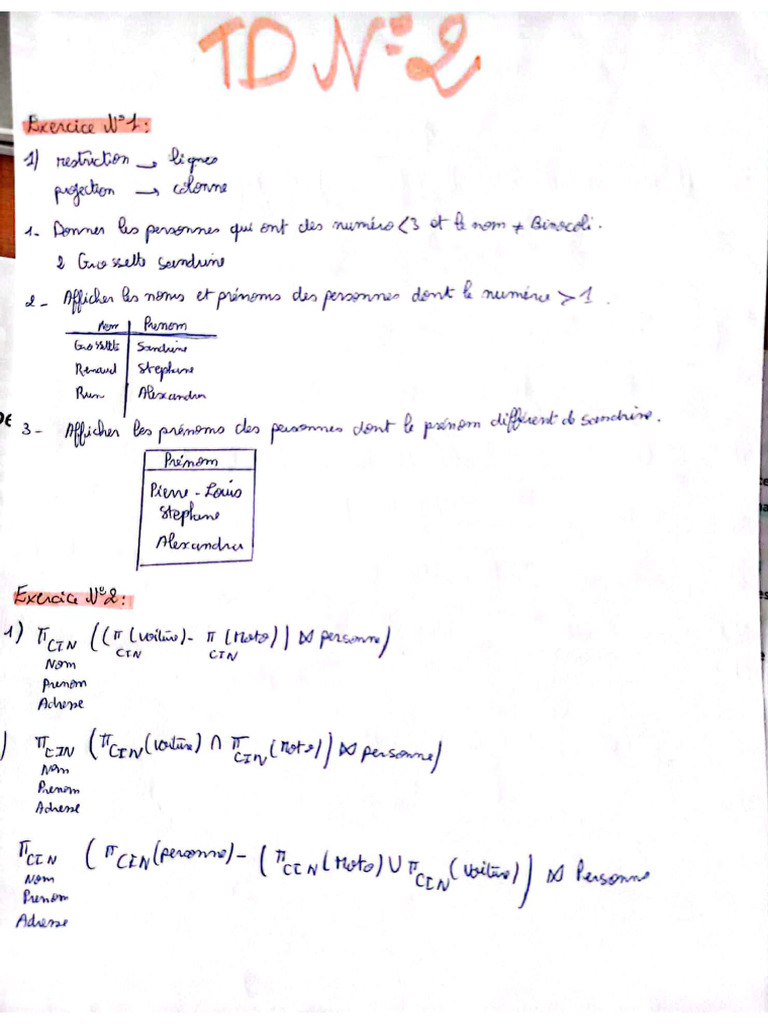 TD N°2
Exercice N°1:
1) restriction → lignes
projection → colonne
1- Donner les personnes qui ont des numéro <3 et le nom ≠ Binocoli.
2 Grossette Sandrine
2- Afficher les noms et prénoms des personnes dont le numéro > 1.
Nom | Prenom
Grossette | Sandrine
Renaud | Stephane
Rum | Alexandra
3- Afficher les prénoms des personnes dont le prénom différent de Sandrine.
Prénom
Pierre-Louis
Stephane
Alexandra
Exercice N°2:
1) π CIN ((π CIN (voiture) - π CIN (Moto)) ⋈ personne)
Nom
Prenom
Adresse
) π CIN (π CIN (voiture) ∩ π CIN (Moto)) ⋈ personne)
Nom
Prenom
Adresse
π CIN (π CIN (personne) - (π CIN (Moto) ∪ π CIN (voiture)) ⋈ Personne
Nom
Prenom
Adresse